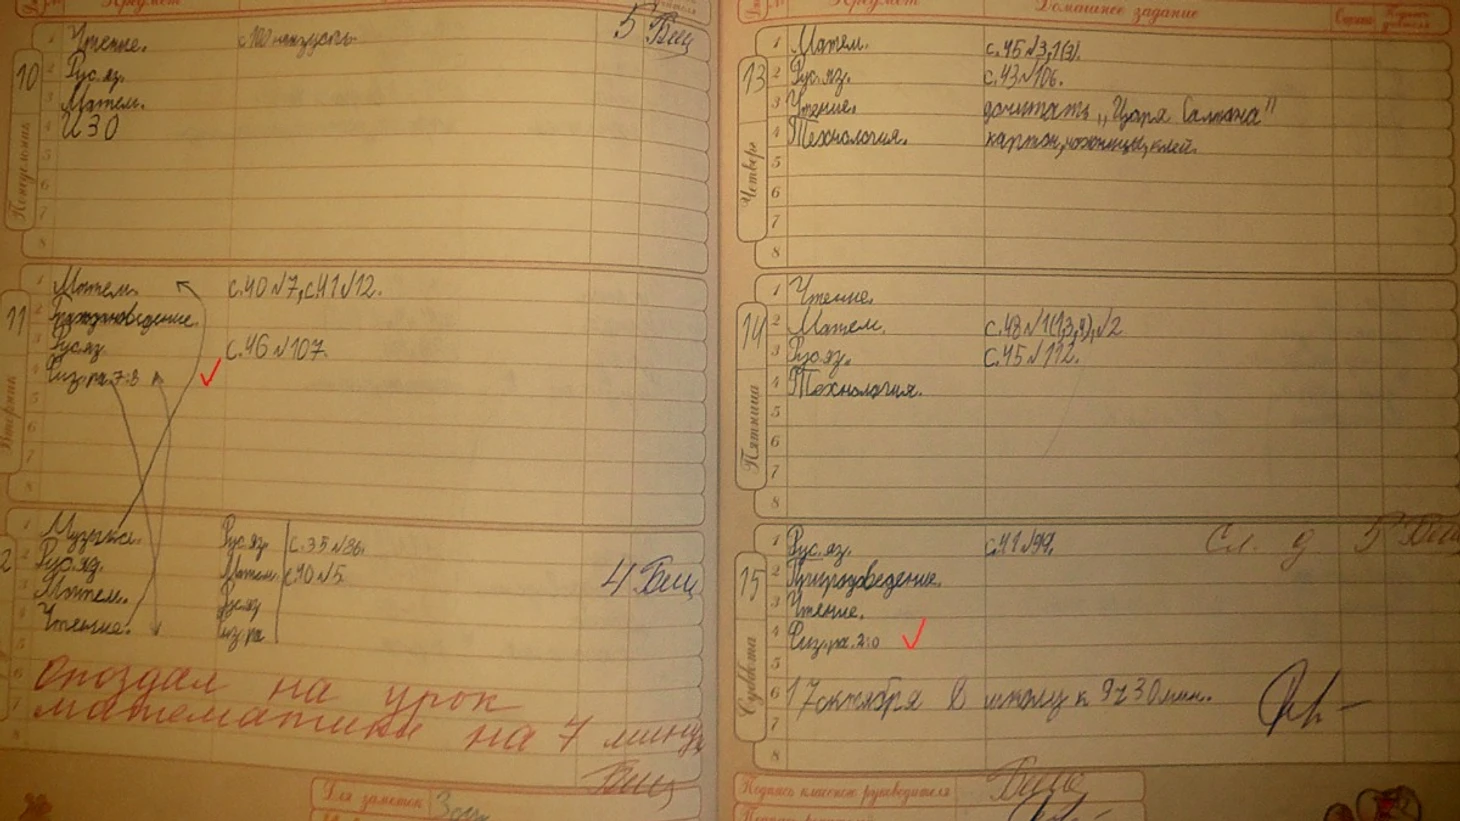 Предмет
Чтение. с 101 наизусть. 5 Бищ
10
Рус.яз.
Матем.
ИЗО
Понедельник
1
2
3
4
5
6
7
8
11
Матем. с.40 №7, с.41 №12.
Рус.яз. с.46 №107.
Физ-ра. 7:8
Вторник
Музыка. Рус.яз. с.35 №86.
Рус.яз. Матем. с.40 №5. 4 Бищ
Матем. Рус.яз
Чтение. Физ-ра
опоздал на урок
математики на 7 минут
Бищ
Для заметок
Предмет Домашнее задание Оценка
13
1 Матем. с.45 №3, 1(3).
2 Рус.яз. с.43 №106.
3 Чтение. дочитать „Царя Салтана"
4 Технология. картон, ножницы, клей.
Четверг
5
6
7
8
14
1 Чтение.
2 Матем. с.48 №1(1,3,4), №2
3 Рус.яз. с.45 №112.
4 Технология.
Пятница
5
6
7
8
15
1 Рус.яз. с.41 №99. Сл. д 5 Бищ
2 Природоведение.
3 Чтение.
4 Физ-ра. 2:0
Суббота
5
6 17 октября в школу к 9ч 30мин.
7
8
Подпись классного руководителя Бищ